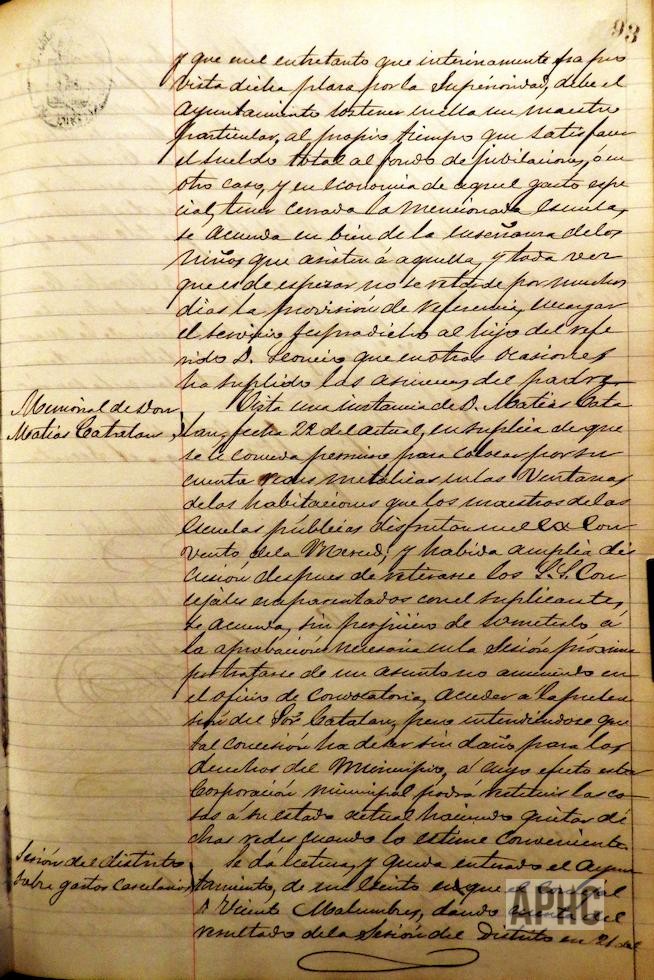 93
y que en el entretanto que interinamente sea pro
vista dicha plaza por la Superioridad, debe el
Ayuntamiento sostener en ella un maestro
particular, al propio tiempo que satisfacer
el sueldo total al fondo de jubilaciones, ó en
otro caso, y en economia de aquel gasto espe
cial, tener cerrada la mencionada Escuela,
se acuerda en bien de la enseñanza de los
niños que asisten á aquella, y toda vez
que es de esperar no se retarde por muchos
dias la provisión de referencia, encargar
el servicio supradicho al hijo del refe
rido D. Leoncio que en otras ocasiones
ha suplido las ausencias del padre
Memorial de Don
Matias Catalan
Vista una instancia de D. Matias Cata
lan, fecha 22 del actual, en suplica de que
se le conceda permiso para colocar por su
cuenta redes metalicas en las Ventanas
de las habitaciones que los maestros de las
Escuelas públicas disfrutan en el Ex Con
vento de la Merced, y habida amplia dis
cusión despues de retirarse los S.S. Con
cejales emparentados con el suplicante,
se acuerda, sin perjuicio de someterlo á
la aprobacion necesaria en la Sesión próxima
por tratarse de un asunto no anunciado en
el oficio de Convocatoria, acceder á la preten
sión del Sor. Catalan, pero intendiendose que
tal concesión ha de ser sin daño para los
derechos del Municipio, á cuyo efecto esta
Corporación municipal podrá restituir las co
sas á su estado actual haciendo quitar di
chas redes cuando lo estime conveniente
Sesión del distrito
sobre gastos carcelarios
Se dá lectura, y queda enterado el Ayun
tamiento, de un escrito en que el
D. Vicente Malumbres, dando cuenta del
resultado de la Sesión del Distrito en 21 del
APHC